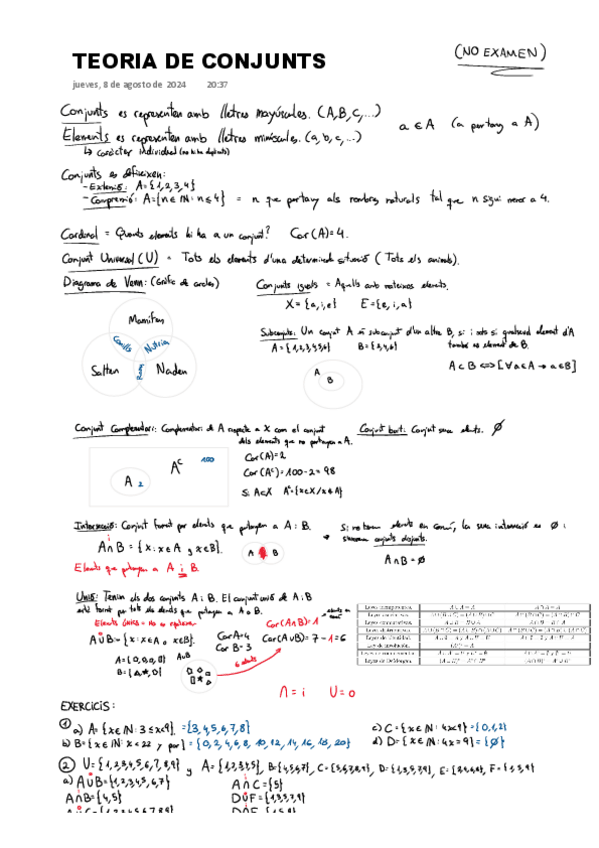 TEORIA DE CONJUNTS
(NO EXAMEN)
jueves, 8 de agosto de 2024 20:37
Conjunts es representen amb lletres majúscules. (A,B,C,...)
Elements es representen amb lletres minúscules. (a,b,c,...)
a ∈ A (a pertany a A)
↳ caràcter individual
Conjunts es defineixen:
- Extensió: A = {1,2,3,4}
- Comprensió: A = {n ∈ ℕ: n ≤ 4} = n que pertany als nombres naturals tal que n sigui menor a 4.
Cardinal = Quants elements hi ha a un conjunt? Car(A)=4.
Conjunt Universal (U) = Tots els elements d'una determinada situació (Tots els animals).
Diagrama de Venn: (Gràfic de cercles)
Mamifers
Conills
Nutries
Salten
Naden
Conjunts iguals = Aquells amb mateixos elements.
X = {a,i,e} E = {e,i,a}
Subconjunts: Un conjunt A és subconjunt d'un altre B, si i sols si qualsevol element d'A
també es element de B.
A = {1,2,3,4,5,6} B = {3,4,6}
A
B
A ⊂ B ⟺ [∀a∈A → a∈B]
Conjunt Complementari: Complementari de A respecte a X com el conjunt
dels elements que no pertanyen a A.
Conjunt buit: Conjunt sense elements. ∅
A 2
Aᶜ
100
Car(A)=2
Car(Aᶜ)=100-2=98
Si A⊂X Aᶜ={x∈X/x∉A}
Intersecció: Conjunt format per elements que pertanyen a A i B.
A∩B = {x: x∈A y x∈B}.
Elements que pertanyen a A i B.
A B
Si no tenen elements en comú, la seva intersecció es ∅ i
s'anomenen conjunts disjunts.
A∩B=∅
Unió: Tenim els dos conjunts A i B. El conjunt unió de A i B
està format per tots els elements que pertanyen a A o B.
Elements únics = no es repeteixen
A∪B = {x: x∈A o x∈B}.
Car A=4
Car B=3
Car(A∩B)=1
Car(A∪B)=7-1=6
6 elements
A∪B
∩ = i U = o
EXERCICIS:
1 a) A={x∈ℕ: 3≤x<9} = {3,4,5,6,7,8}
c) C={x∈ℕ: 4x<9} = {0,1,2}
b) B={x∈ℕ: x<22 y par} = {0,2,4,6,8,10,12,14,16,18,20}
d) D={x∈ℕ: 4x=9} = {∅}
2 U={1,2,3,4,5,6,7,8,9} y A={1,2,3,4,5}, B={4,5,6,7}, C={5,6,7,8,9}, D={1,3,5,7,9}, E={2,4,6,8}, F={1,5,9}
a) A∪B={1,2,3,4,5,6,7}
A∩C={5}
A∩B={4,5}
D∪F={1,3,5,7,9}